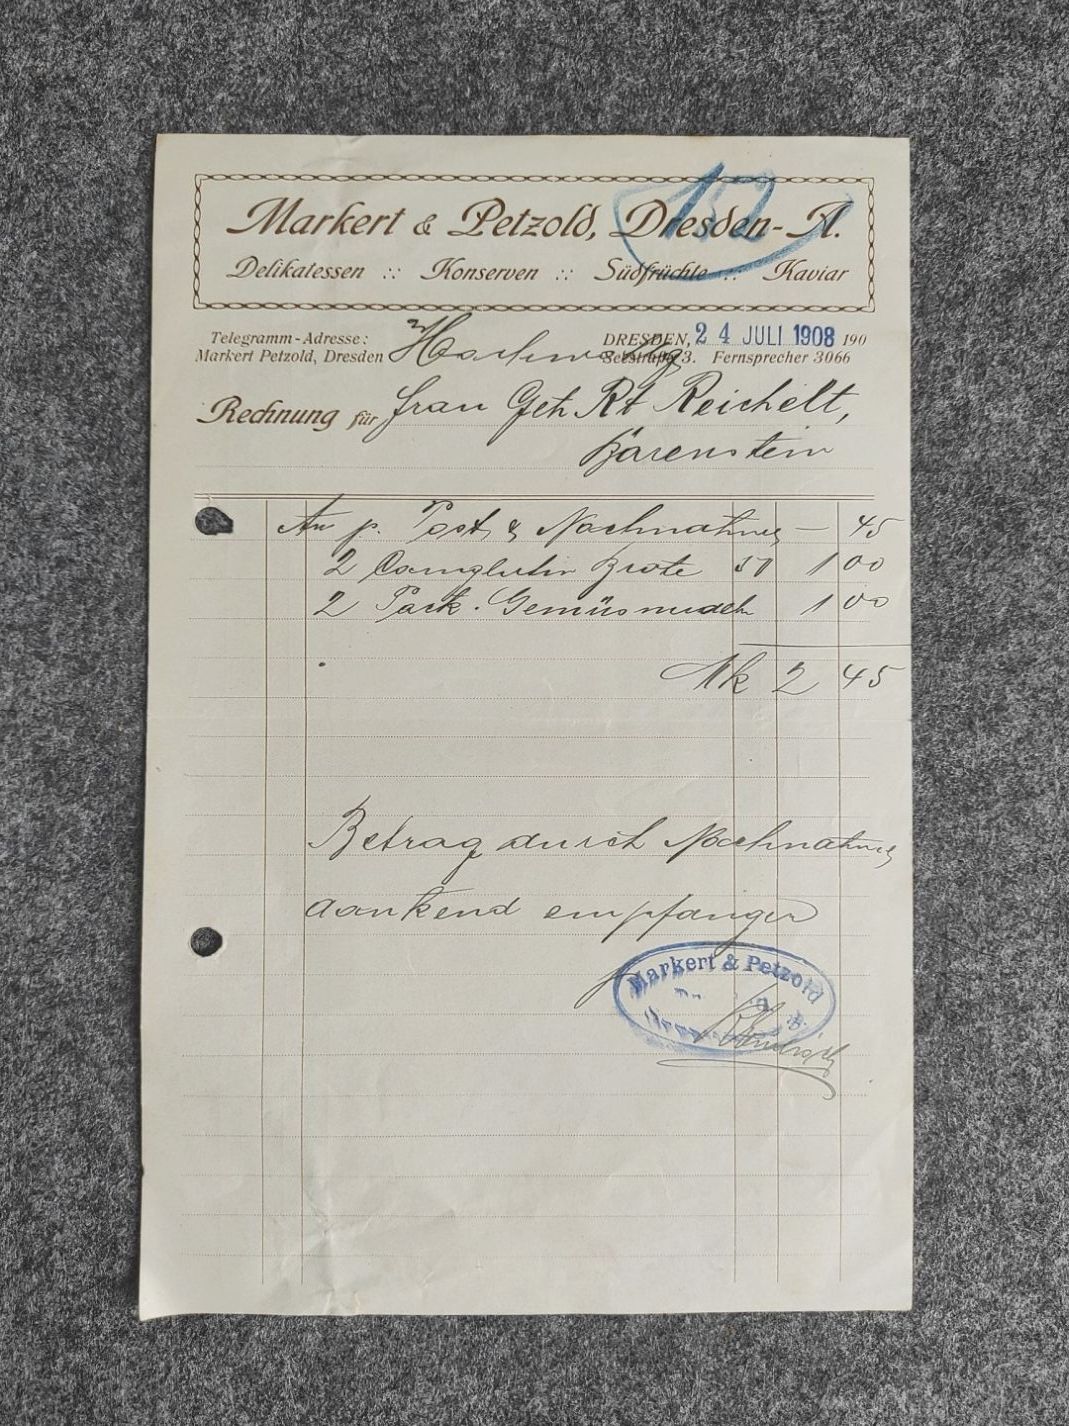 152
Markert & Petzold, Dresden-A.
Delikatessen .:. Konserven .:. Südfrüchte .:. Kaviar
Telegramm-Adresse:
Markert Petzold, Dresden
DRESDEN, 24 JULI 1908 190
Seestraße 3. Fernsprecher 3066
Rechnung für Frau Geh Rt Reichelt,
Bärenstein
An p. Post & Nachnahme — 45
2 Brote 50 1 00
2 Pack. Gemüsnudeln 1 00
Mk 2 45
Betrag durch Nachnahme
dankend empfangen
Markert & Petzold